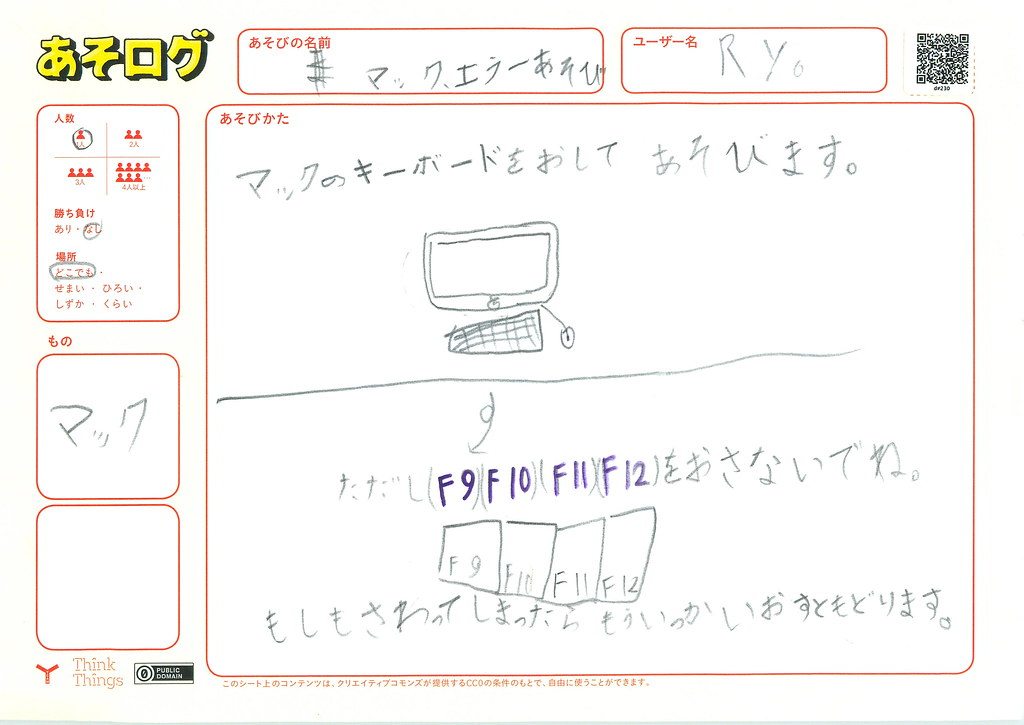 あそログ
あそびの名前
マック、エラーあそび
ユーザー名
Ry。
d#230
人数
1人
2人
3人
4人以上
勝ち負け
あり・なし
場所
どこでも・
せまい・ひろい・
しずか・くらい
もの
マック
あそびかた
マックのキーボードをおして あそびます。
ただし(F9)(F10)(F11)(F12)をおさないでね。
F9 F10 F11 F12
もしもさわってしまったら もういっかいおすともどります。
Think
Things
PUBLIC
DOMAIN
このシート上のコンテンツは、クリエイティブコモンズが提供するCC0の条件のもとで、自由に使うことができます。